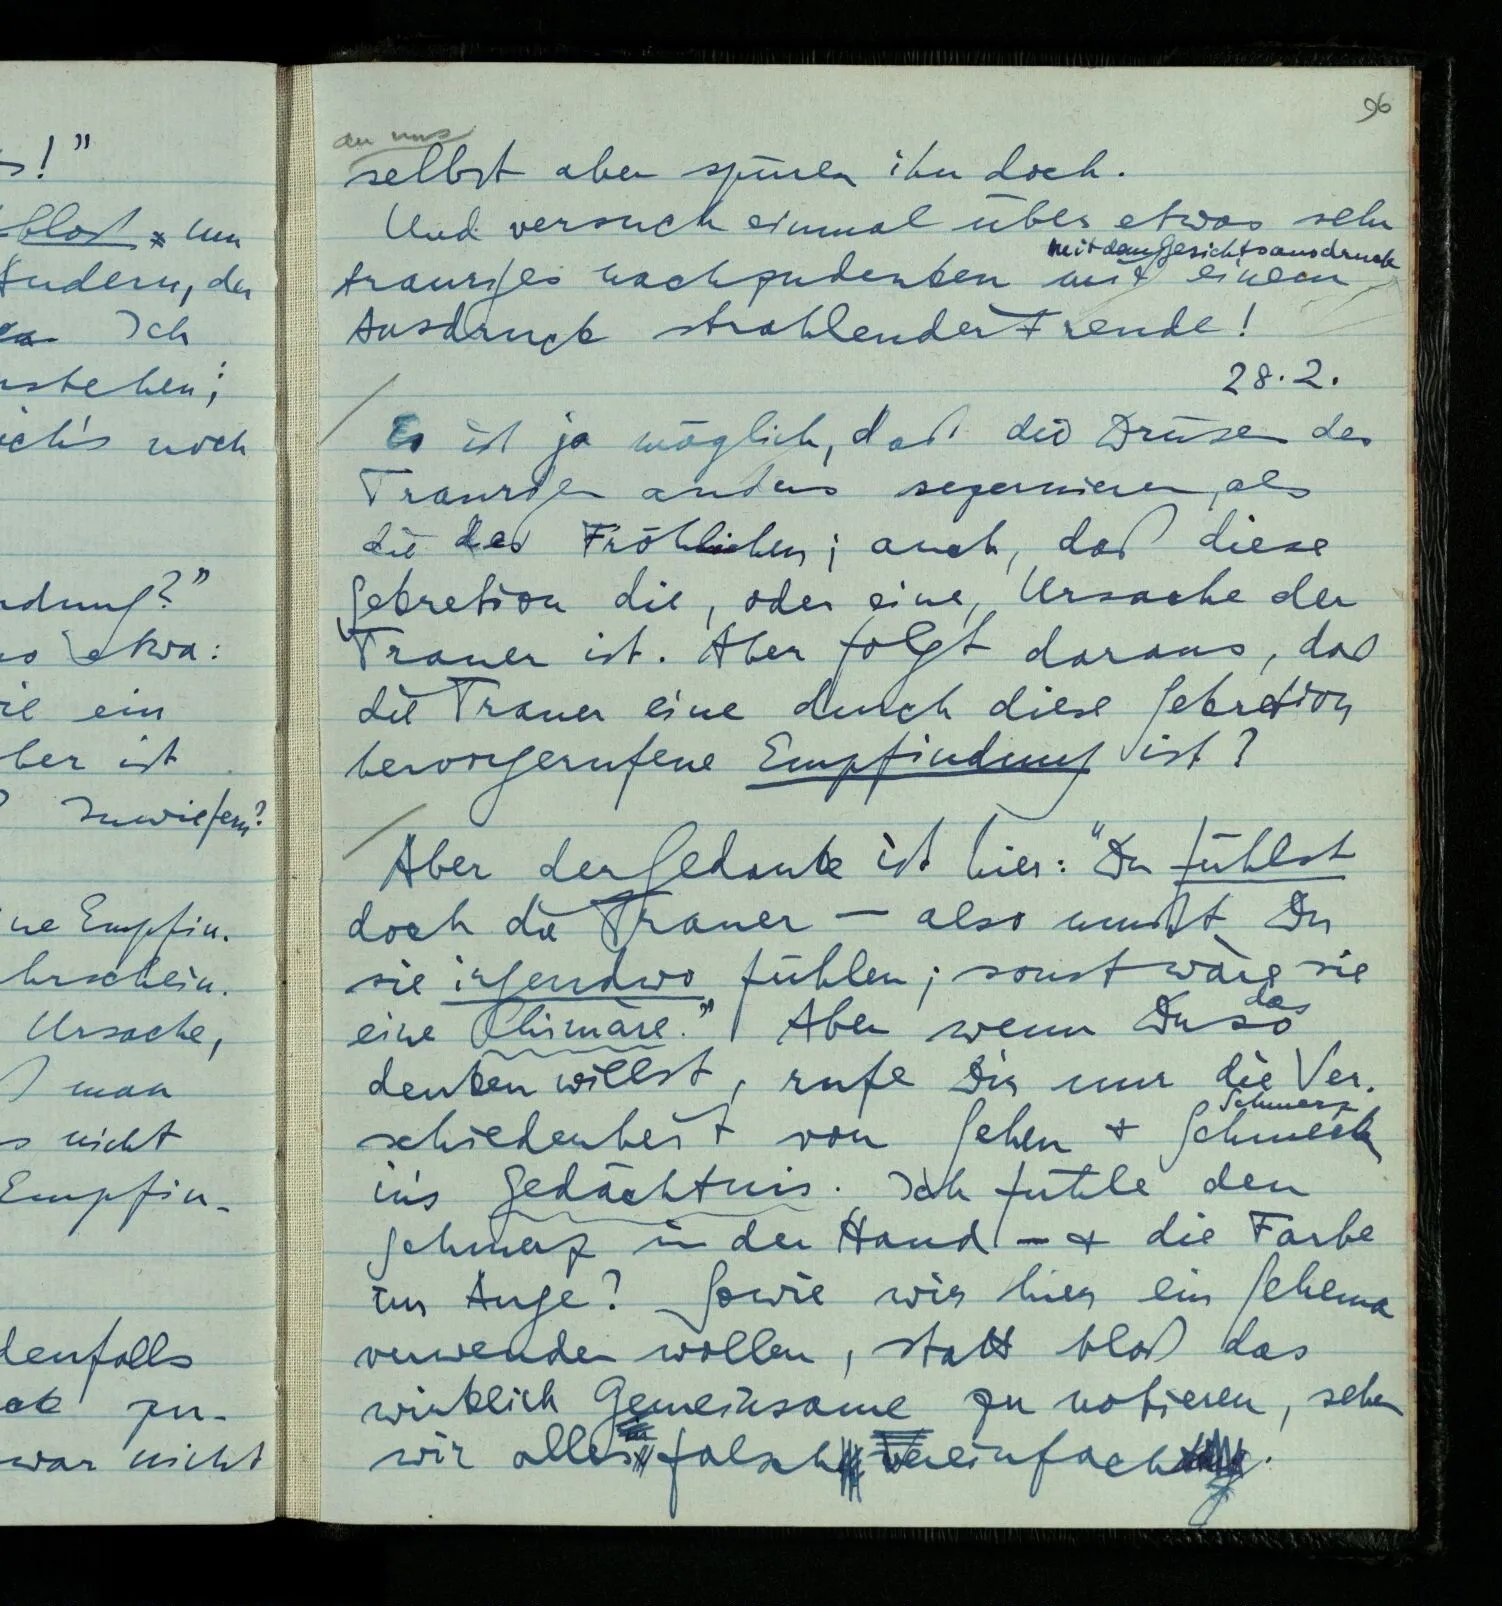 s!"
bloß um
Andern, der
Ich
nstehen;
ich's noch
ndung?"
so etwa:
ie ein
ber ist
Inwiefern?
ne Empfin-
hrschein-
Ursache,
ß man
s nicht
Empfin-
denfalls
ck zu-
war nicht
96
an uns
selbst aber spüren ihn doch.
Und versuch einmal über etwas sehr
mit dem Gesichtsausdruck
trauriges nachzudenken mit einem
Ausdruck strahlender Freude!
28.2.
Es ist ja möglich, daß die Drüsen des
Traurigen anders segernieren, als
die des Fröhlichen; auch, daß diese
Sekretion die, oder eine, Ursache der
Trauer ist. Aber folgt daraus, daß
die Trauer eine durch diese Sekretion
hervorgerufene Empfindung ist?
Aber der Gedanke ist hier: "Du fühlst
doch die Trauer — also mußt Du
sie irgendwo fühlen; sonst wäre sie
eine Chimäre." Aber wenn Du so
das
denken willst, rufe Dir nur die Ver-
schiedenheit von Sehen + Schmeck
Schmerz
in's Gedächtnis. Ich fühle den
Schmerz in der Hand – + die Farbe
im Auge? Sowie wir hier ein Schema
verwenden wollen, statt bloß das
wirklich Gemeinsame zu notieren, sehen
wir alles falsch vereinfacht.